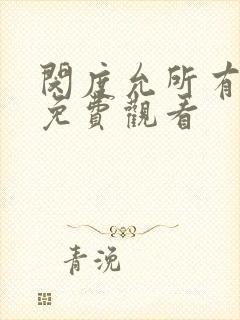 閔度允所有
免費觀看
青浼